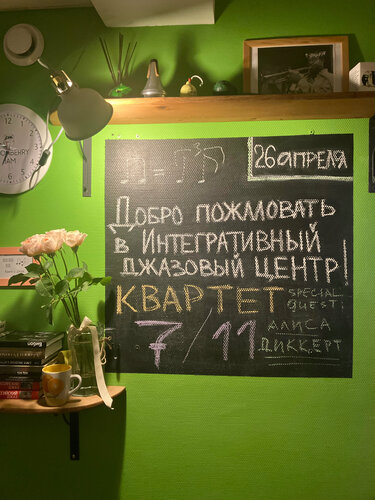 26 апреля
Добро пожмовать
в Интегративный
джазовый центр!
Квартет
7/11
special
guest:
Алиса
Диккерт